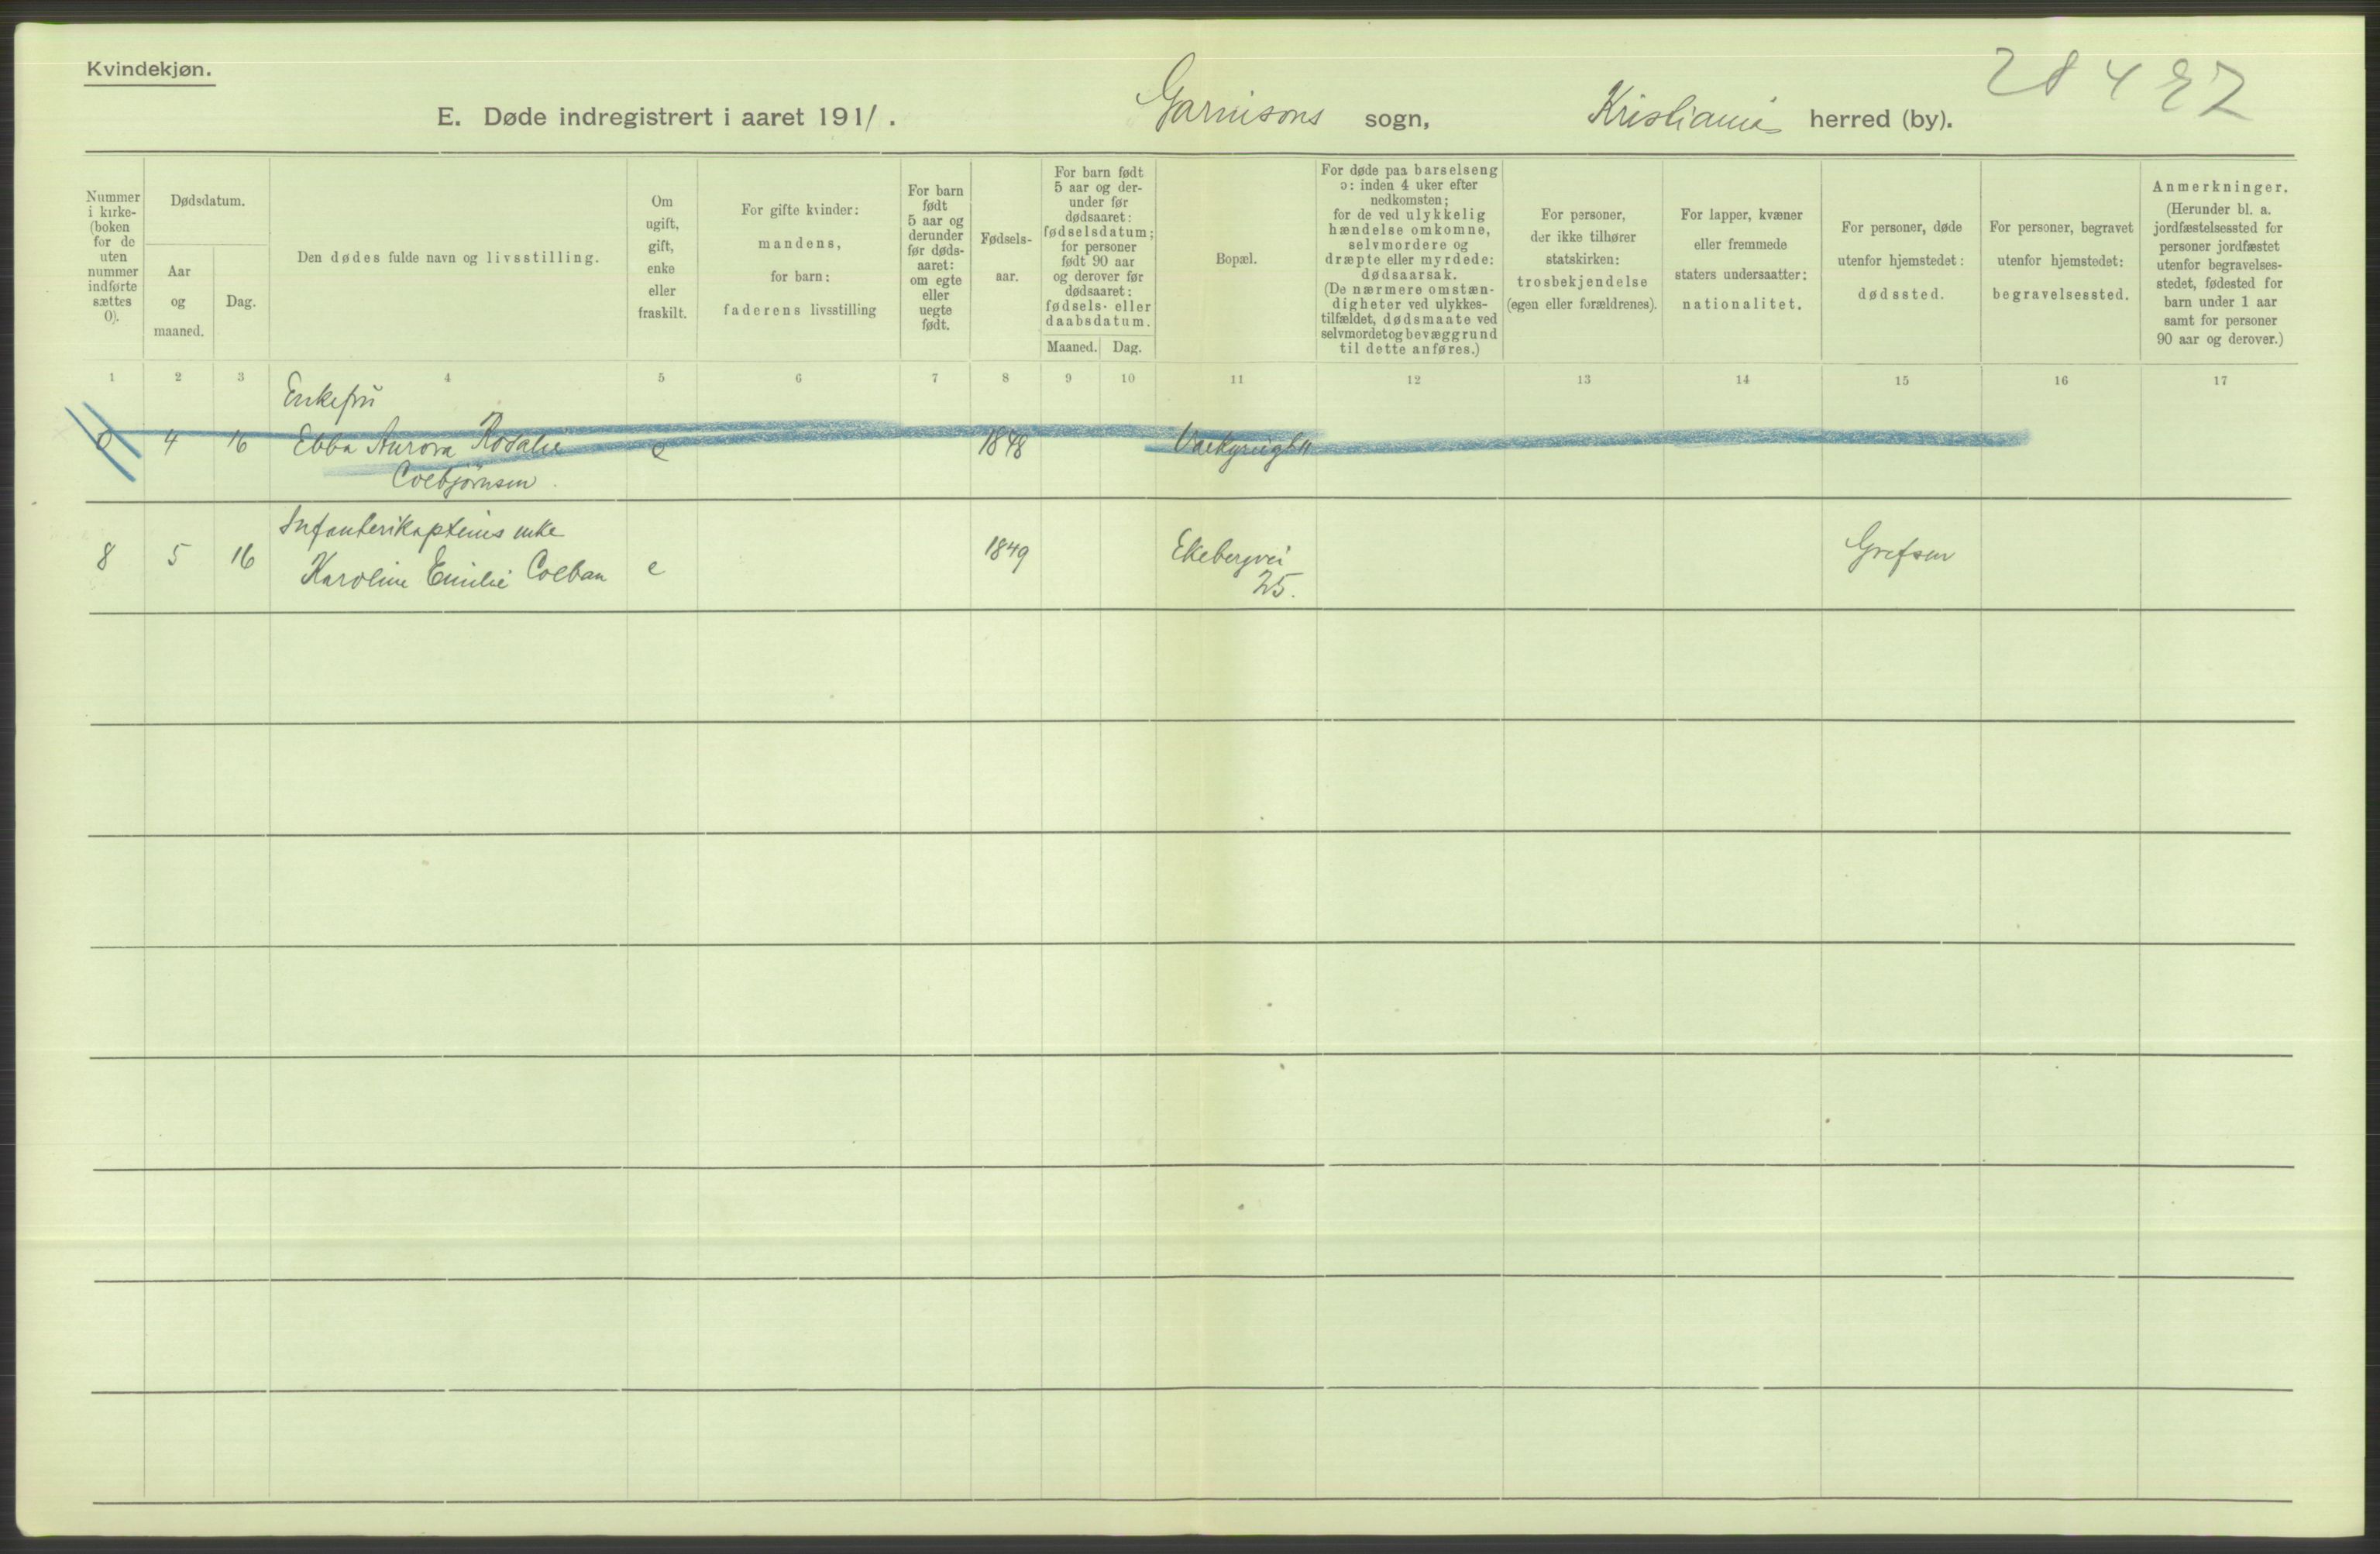 Kvindekjøn.
28487
E. Døde indregistrert i aaret 1911. Garnisons sogn, Kristiania herred (by).
Nummer
i kirke-
(boken
for de
uten
nummer
indførte
sættes
0).
Dødsdatum.
Aar
og
maaned.
Dag.
Den dødes fulde navn og livsstilling.
Om
ugift,
gift,
enke
eller
fraskilt.
For gifte kvinder:
mandens,
for barn:
faderens livsstilling
For barn
født
5 aar og
derunder
før døds-
aaret:
om egte
eller
uegte
født.
Fødsels-
aar.
For barn født
5 aar og der-
under før
dødsaaret:
fødselsdatum;
for personer
født 90 aar
og derover før
dødsaaret:
fødsels- eller
daabsdatum.
Maaned. Dag.
Bopæl.
For døde paa barselseng
ɔ: inden 4 uker efter
nedkomsten;
for de ved ulykkelig
hændelse omkomne,
selvmordere og
dræpte eller myrdede:
dødsaarsak.
(De nærmere omstæn-
digheter ved ulykkes-
tilfældet, dødsmaate ved
selvmord et og bevæggrund
til dette anføres.)
For personer,
der ikke tilhører
statskirken:
trosbekjendelse
(egen eller forældrenes).
For lapper, kvæner
eller fremmede
staters undersaatter:
nationalitet.
For personer, døde
utenfor hjemstedet:
dødssted.
For personer, begravet
utenfor hjemstedet:
begravelsessted.
Anmerkninger.
(Herunder bl. a.
jordfæstelsessted for
personer jordfæstet
utenfor begravelses-
stedet, fødested for
barn under 1 aar
samt for personer
90 aar og derover.)
1 2 3 4 5 6 7 8 9 10 11 12 13 14 15 16 17
Enkefru
0 4 16 Ebba Aurora Rosalie e 1848
Colbjørnsen.
Infanterikapteins enke
8 5 16 Karoline Emilie Colban e 1849 Ekebergvei Grefsen
25.